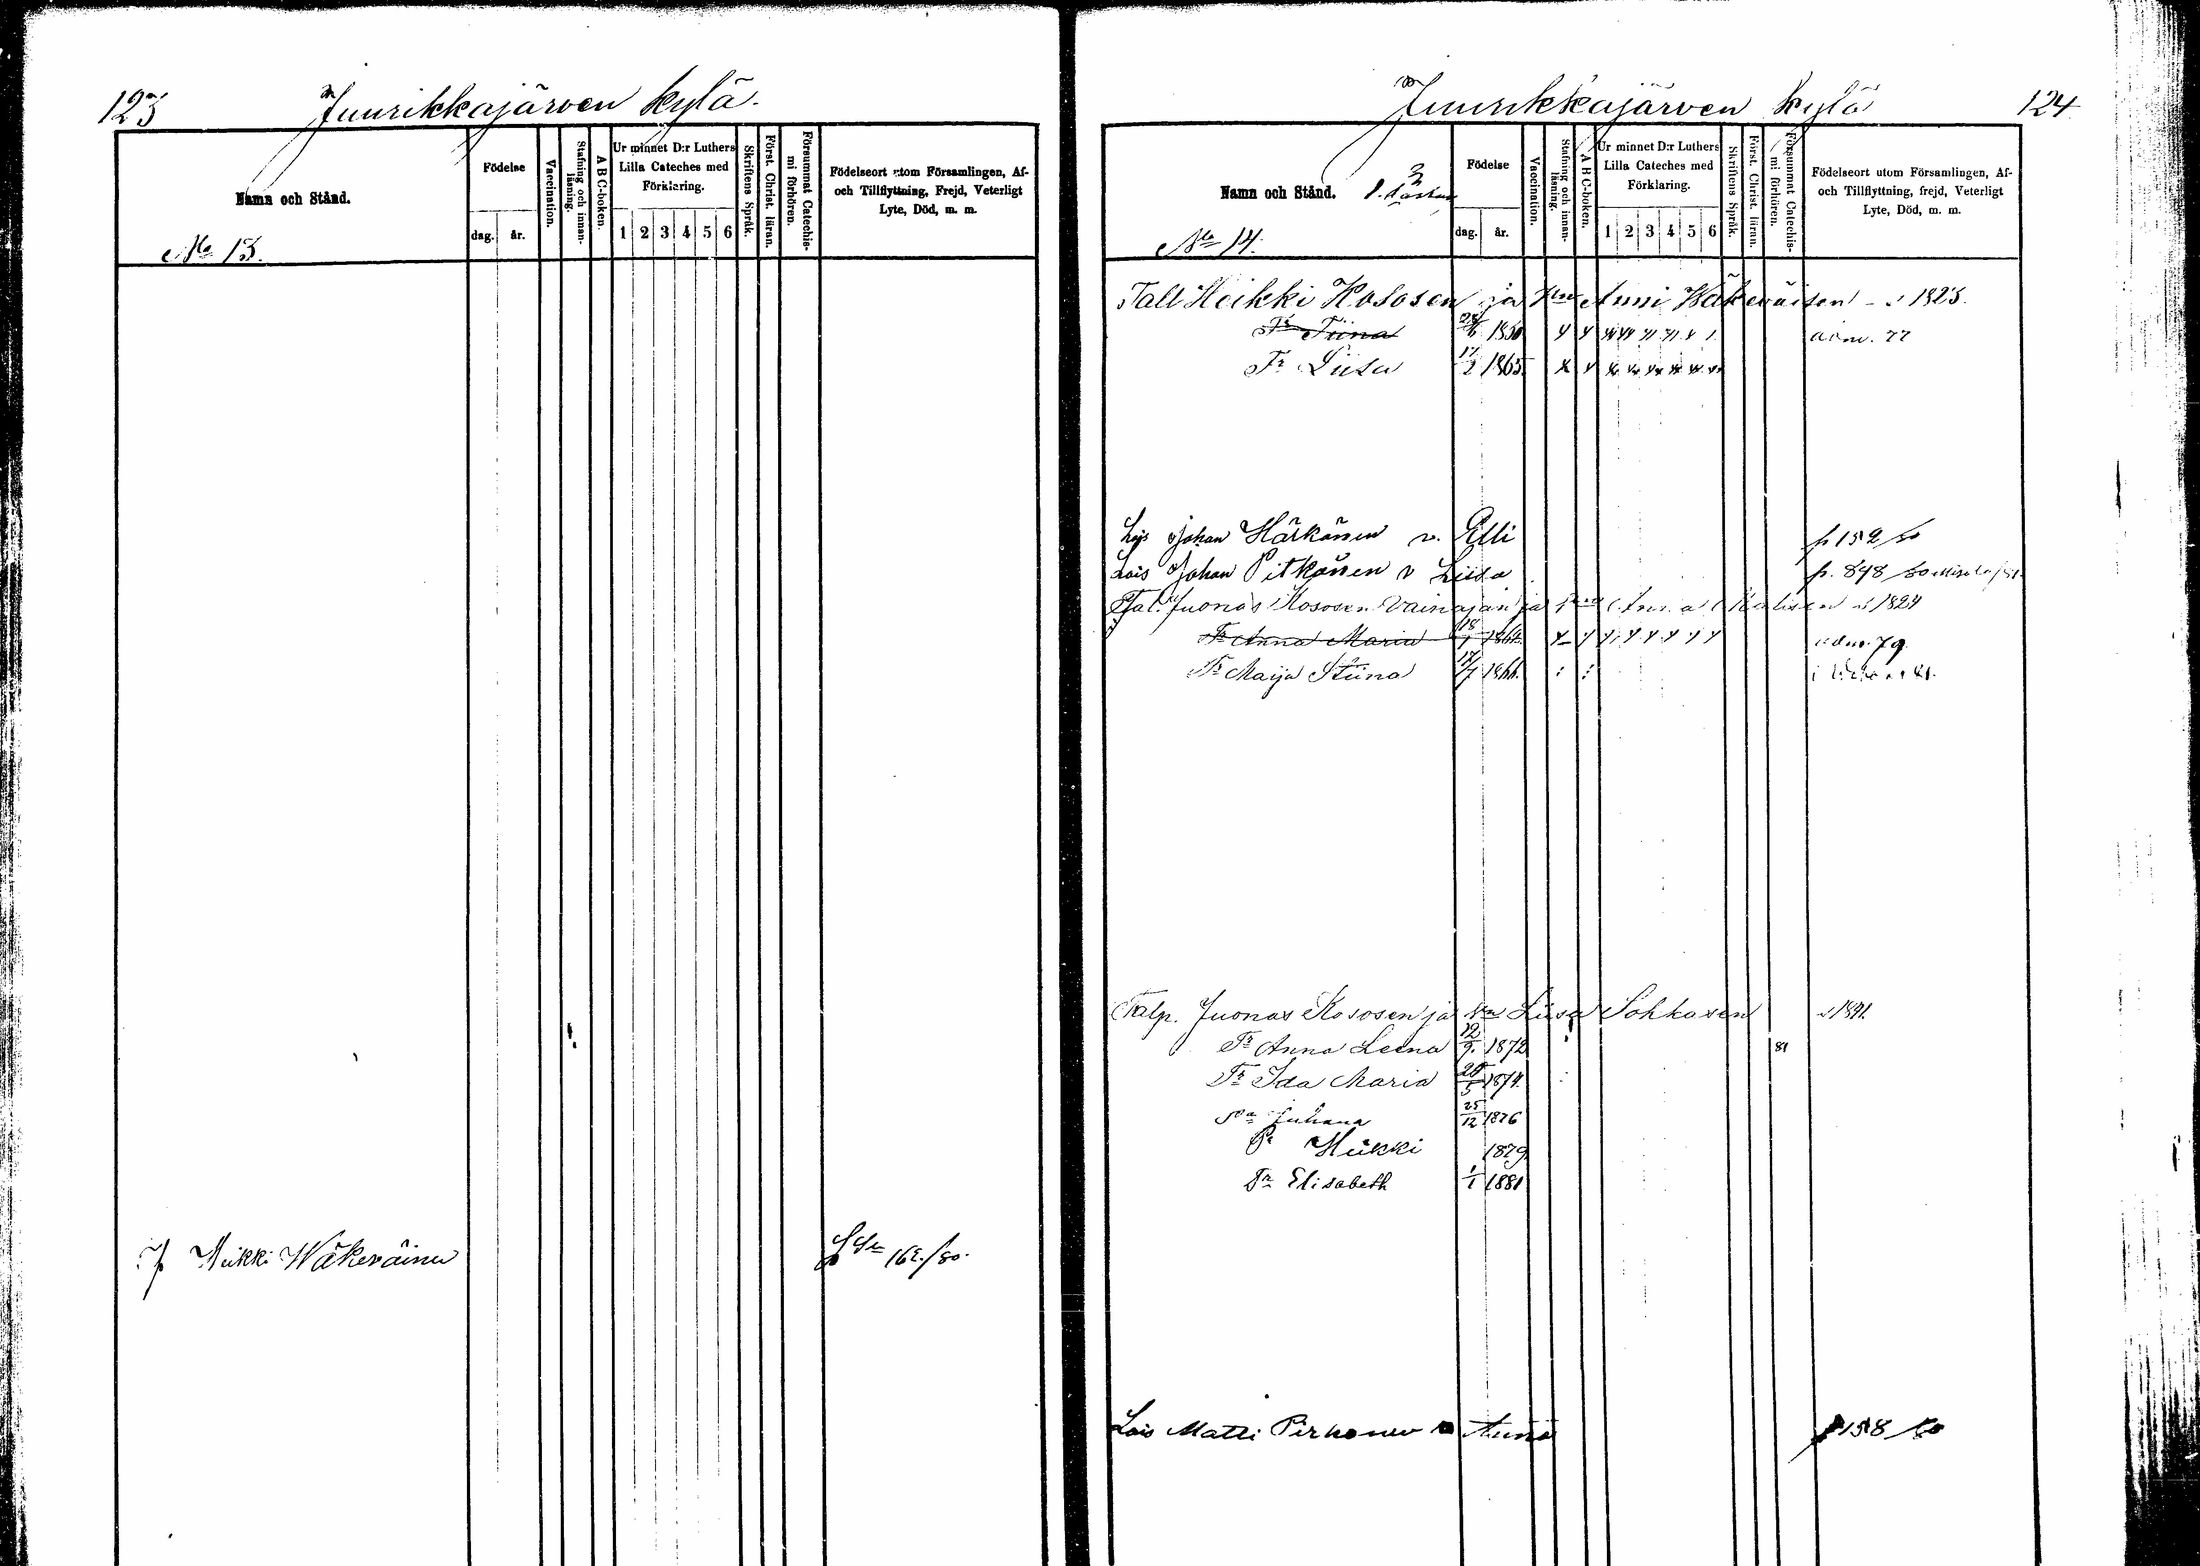 123
Juurikkajärven kylä.
Namn och Stånd.
No 13.
Födelse
dag. år.
Vaccination.
Stafning och innan-läsning.
A B C-boken.
Ur minnet D:r Luthers
Lilla Cateches med
Förklaring.
1 2 3 4 5 6
Skriftens Språk.
Först. Christ. läran.
Försummat Catechis-mi förhören.
Födelseort utom Församlingen, Af-
och Tillflyttning, Frejd, Veterligt
Lyte, Död, m. m.
Heikki Wäkeväinen 162/80.
Juurikkajärven kylä
124
Namn och Stånd.
No 14.
Födelse
dag. år.
Vaccination.
Stafning och innan-läsning.
A B C-boken.
Ur minnet D:r Luthers
Lilla Cateches med
Förklaring.
1 2 3 4 5 6
Skriftens Språk.
Först. Christ. läran.
Försummat Catechis-mi förhören.
Födelseort utom Församlingen, Af-
och Tillflyttning, frejd, Veterligt
Lyte, Död, m. m.
Tall Heikki Kososen ja Anni Wäkeväisen 1823.
Tr Tiina 1850 adm. 77
Tr Liisa 17/2 1865
Lois Johan Härkönen v. Elli p 152/80
Lois Johan Pitkänen v Liisa p. 898/80
Tal. Juonas Kososen vainajan ja 1824
Tr Anna Maria 18/1 1862 adm. 79.
Tr Maija Stiina 1866.
Talp. Juonas Kososen ja Vn Liisa Sohkasen
Tr Anna Leena 12/9. 1872 81
Tr Ida Maria 28/5 1874.
Juhana 25/12 1876
Heikki 1879
Tr Elisabeth 1/1 1881
Lois Matti Pirhonen Anna p 158/80